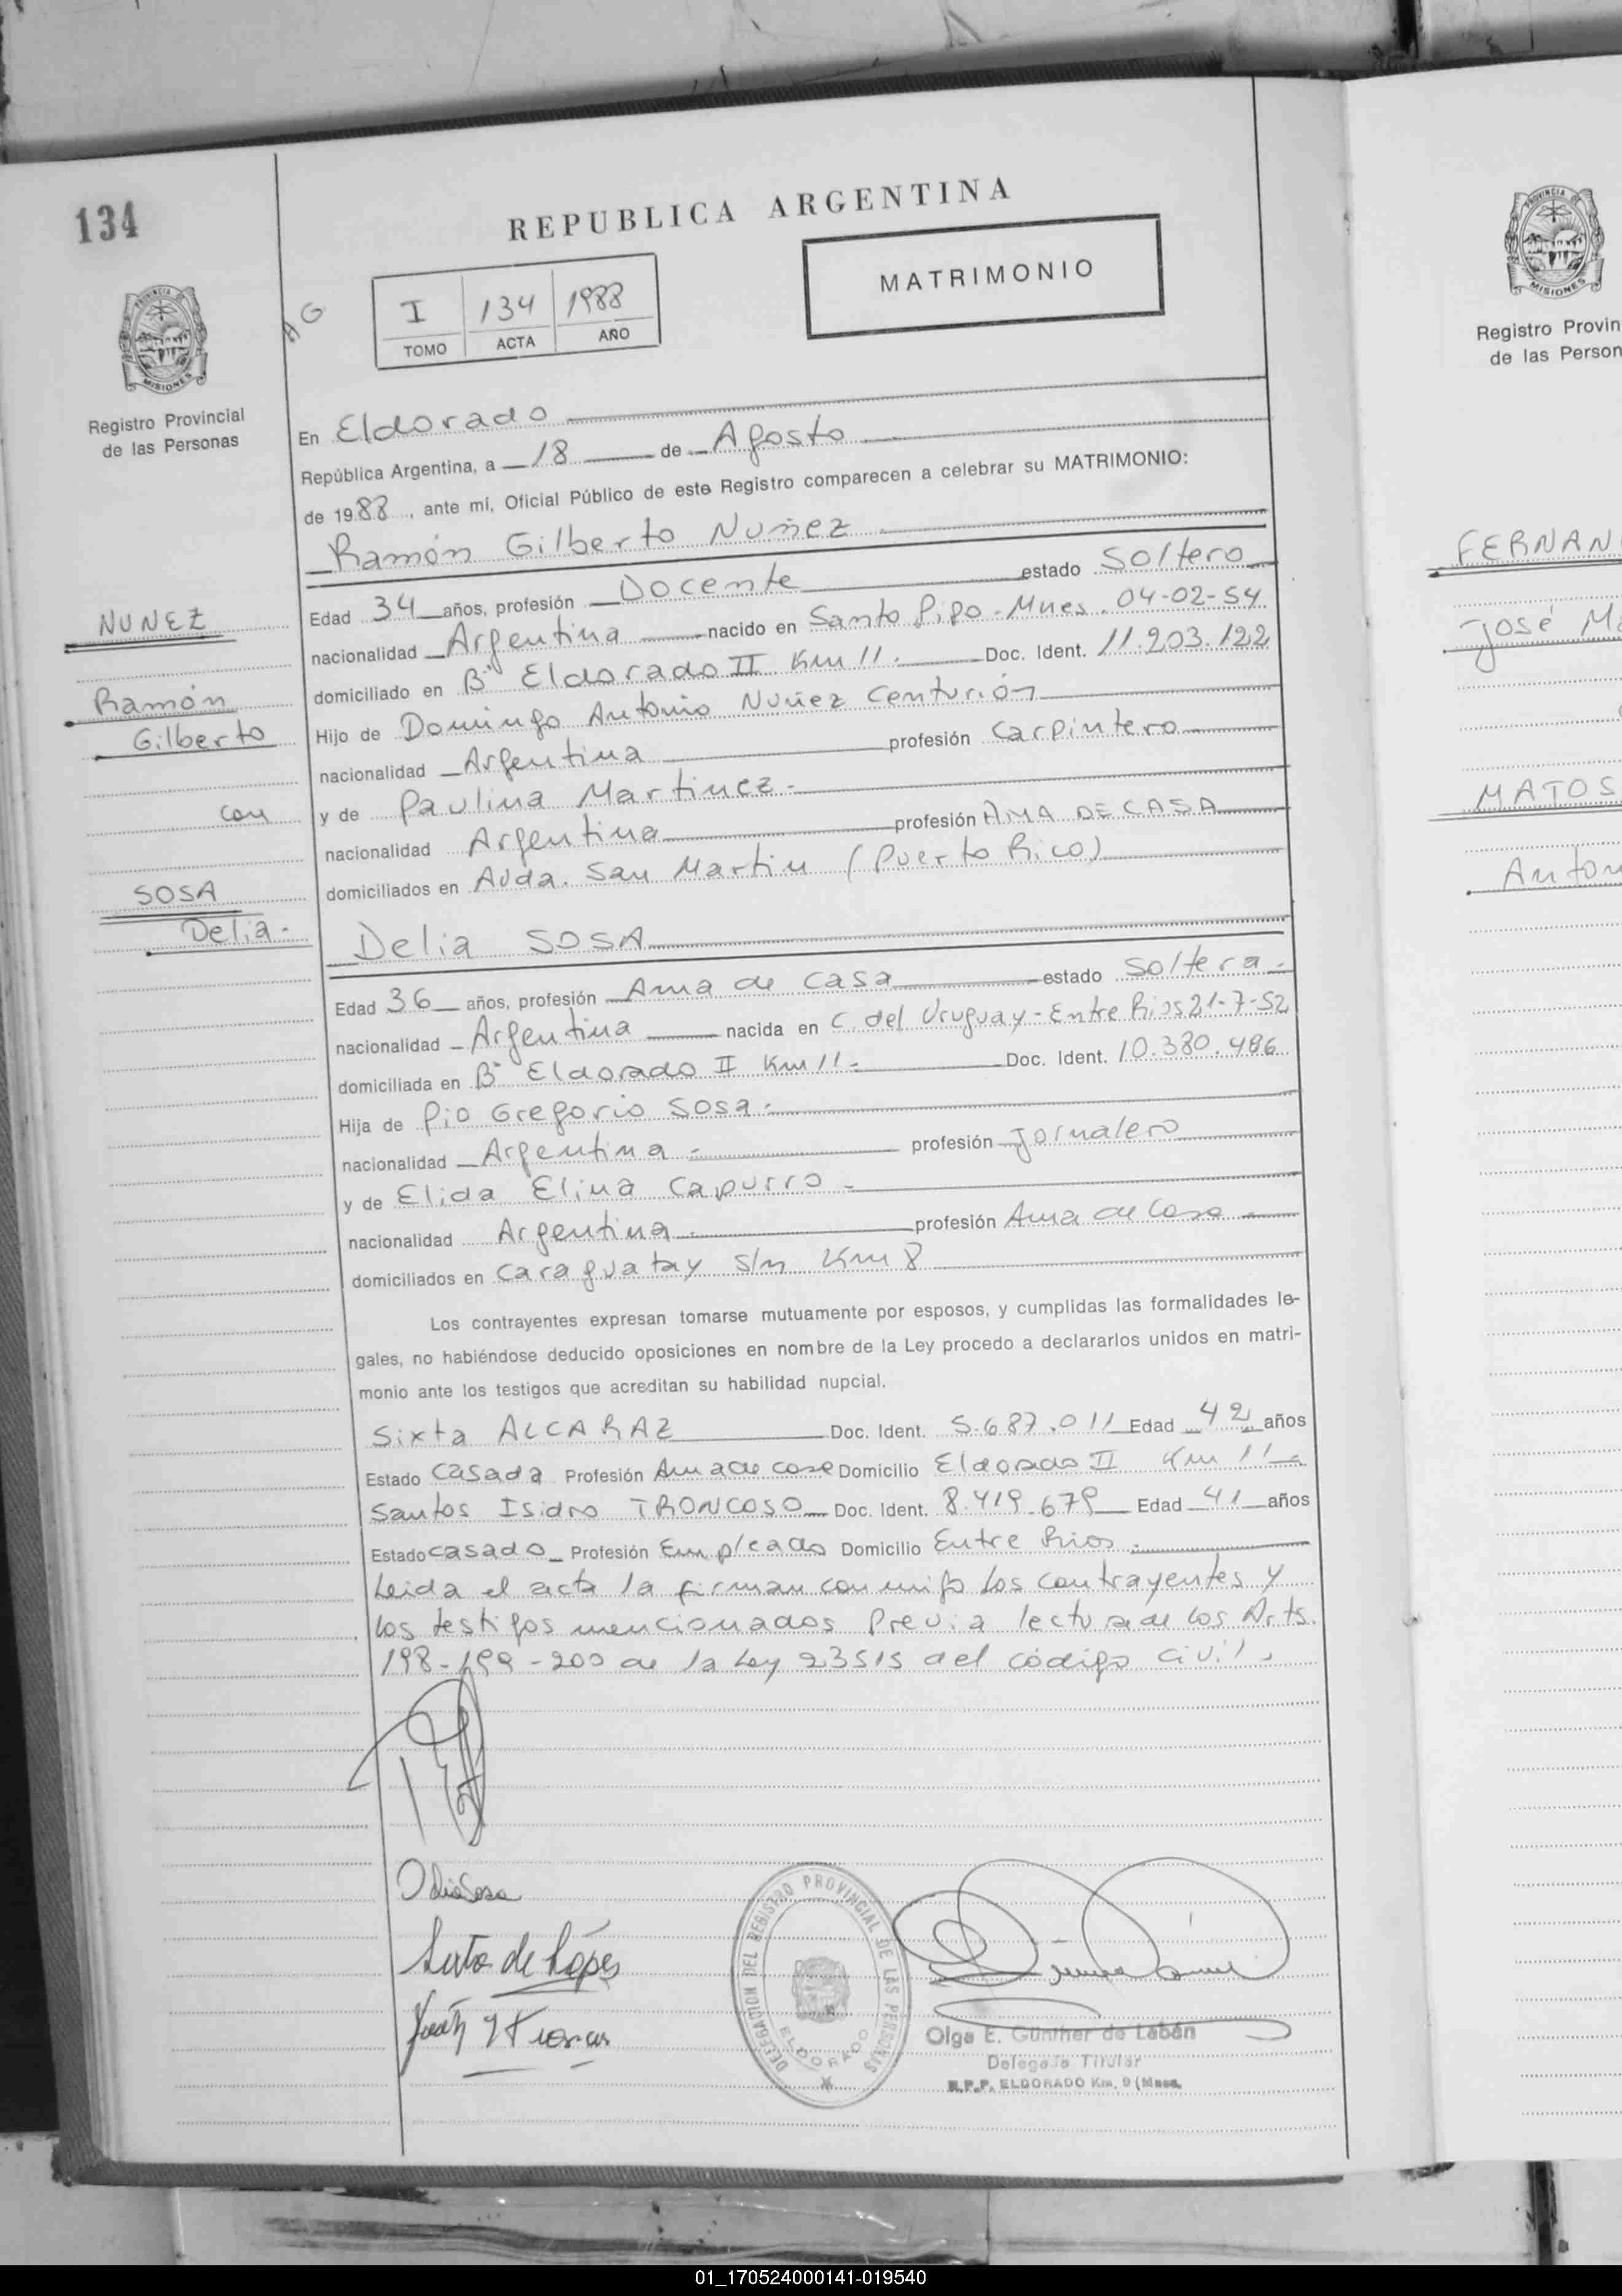 134
REPUBLICA ARGENTINA
MATRIMONIO
A G
I 134 1988
TOMO ACTA AÑO
PROVINCIA DE
MISIONES
Registro Provincial
de las Personas
En Eldorado
República Argentina, a 18 de Agosto
de 1988, ante mí, Oficial Público de este Registro comparecen a celebrar su MATRIMONIO:
Ramón Gilberto Nuñez
Edad 34 años, profesión Docente estado Soltero
nacionalidad Argentina nacido en Santo Pipo - Mnes. 04-02-54
domiciliado en B° Eldorado II Km 11. Doc. Ident. 11.203.122
Hijo de Domingo Antonio Nuñez Centurión
nacionalidad Argentina profesión Carpintero
y de Paulina Martinez.
nacionalidad Argentina profesión AMA DE CASA
domiciliados en Avda. San Martin (Puerto Rico)
NUNEZ
Ramón
Gilberto
con
SOSA
Delia.-
Delia SOSA
Edad 36 años, profesión Ama de casa estado Soltera.
nacionalidad Argentina nacida en C. del Uruguay - Entre Rios 21-7-52
domiciliada en B° Eldorado II Km 11. Doc. Ident. 10.380.486
Hija de Pio Gregorio Sosa.
nacionalidad Argentina. profesión Jornalero
y de Elida Elina Capurro.
nacionalidad Argentina. profesión Ama de Casa
domiciliados en Caraguatay s/n Km 8
Los contrayentes expresan tomarse mutuamente por esposos, y cumplidas las formalidades le-
gales, no habiéndose deducido oposiciones en nombre de la Ley procedo a declararlos unidos en matri-
monio ante los testigos que acreditan su habilidad nupcial.
Sixta ALCARAZ Doc. Ident. 5.687.011 Edad 42 años
Estado Casada Profesión Ama de casa Domicilio Eldorado II Km 11
Santos Isidro TRONCOSO Doc. Ident. 8.419.679 Edad 41 años
Estado casado Profesión Empleado Domicilio Entre Rios.
Leida el acta la firman conmigo los contrayentes y
los testigos mencionados Previa lectura de los Arts.
198-199-200 de la Ley 23515 del código civil.
Delia Sosa
de López
DELEGACION DEL REGISTRO PROVINCIAL DE LAS PERSONAS
ELDORADO
Olga E. Günther de Labán
Delegada Titular
R.P.P. ELDORADO Km. 9 (Mnes.
PROVINCIA DE
MISIONES
Registro Provin
de las Person
FERNAN
José Ma
MATOS
Anton
01_170524000141-019540